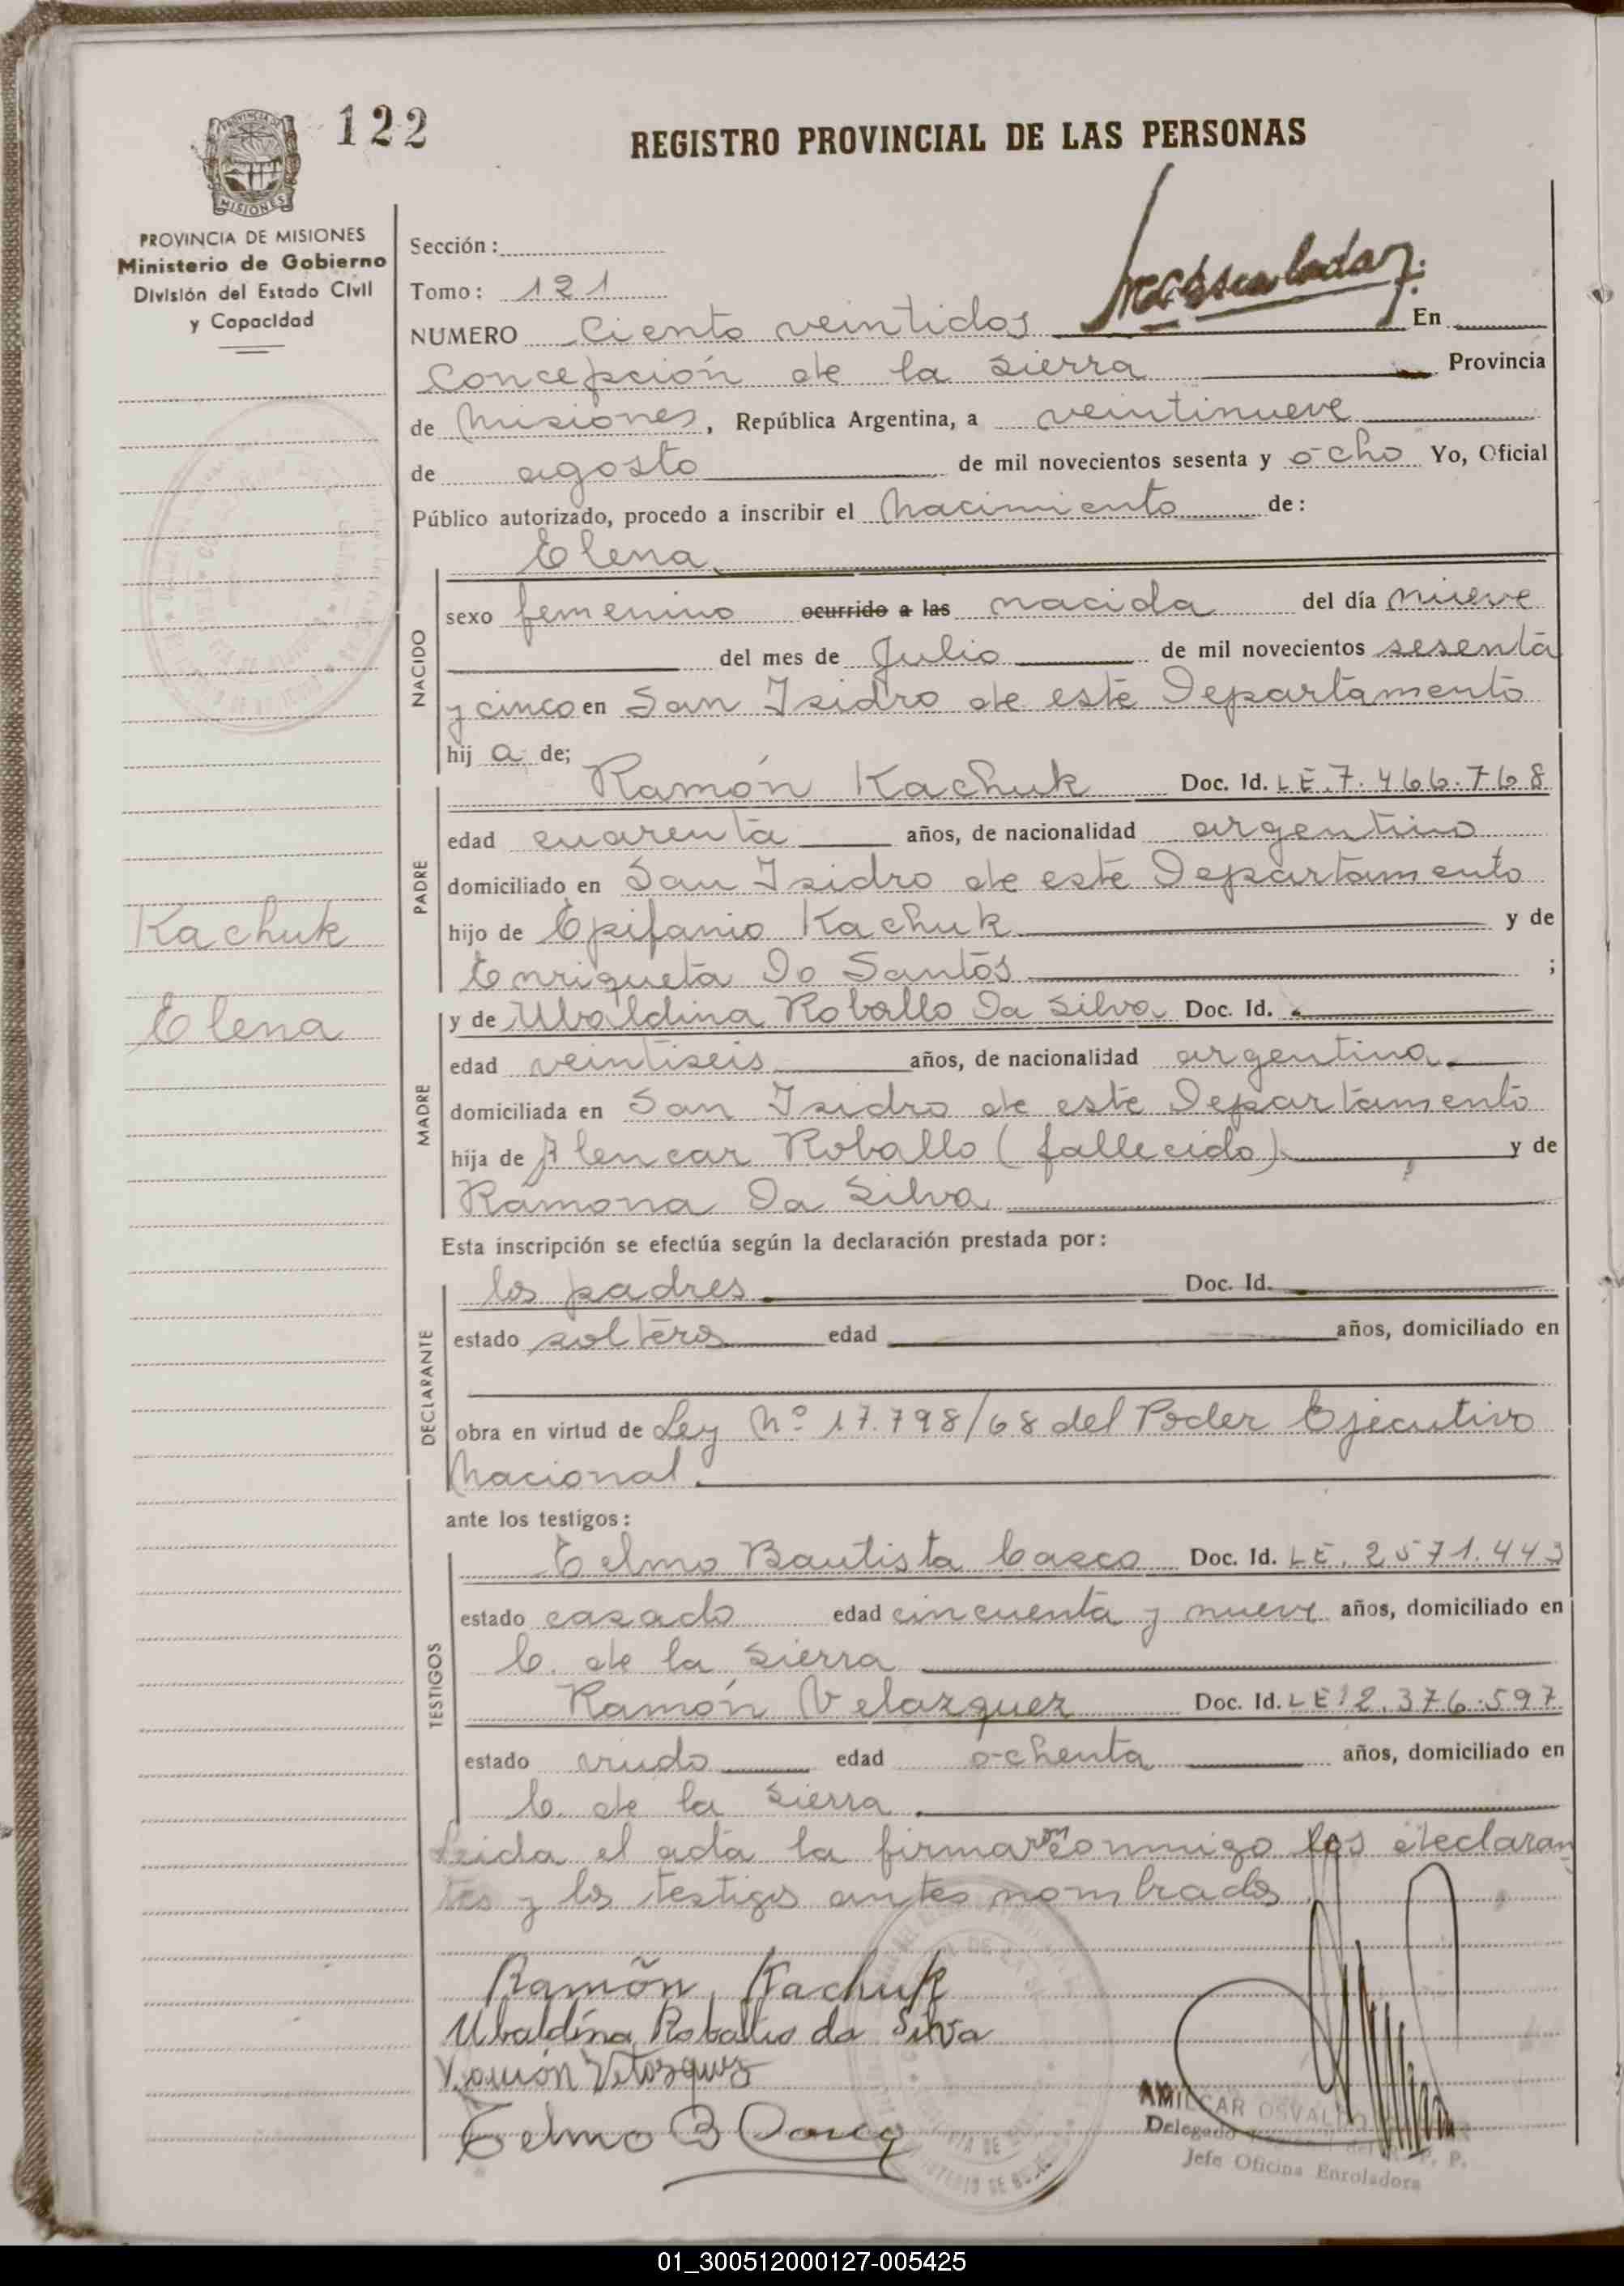 122
REGISTRO PROVINCIAL DE LAS PERSONAS
PROVINCIA DE
MISIONES
PROVINCIA DE MISIONES
Ministerio de Gobierno
División del Estado Civil
y Capacidad
Sección:
Tomo: 121
NUMERO Ciento veintidos En
Concepción de la Sierra Provincia
de Misiones, República Argentina, a veintinueve
de agosto de mil novecientos sesenta y ocho Yo, Oficial
Público autorizado, procedo a inscribir el Nacimiento de:
Elena
NACIDO
sexo femenino ocurrido a las nacida del día nueve
del mes de Julio de mil novecientos sesenta
y cinco en San Isidro de este Departamento
hij a de;
Ramón Kachuk Doc. Id. LE. 7.466.768
PADRE
edad cuarenta años, de nacionalidad argentino
domiciliado en San Isidro de este Departamento
hijo de Epifanio Kachuk y de
Enriqueta Do Santos ;
Kachuk
Elena
MADRE
y de Ubaldina Roballo Da Silva Doc. Id.
edad veintiseis años, de nacionalidad argentina
domiciliada en San Isidro de este Departamento
hija de Alencar Roballo (fallecido) y de
Ramona Da Silva
Esta inscripción se efectúa según la declaración prestada por:
DECLARANTE
los padres Doc. Id.
estado solteros edad años, domiciliado en
obra en virtud de Ley Nº 17.798/68 del Poder Ejecutivo
Nacional.
ante los testigos:
TESTIGOS
Telmo Bautista Casco Doc. Id. LE. 2571.443
estado casado edad cincuenta y nueve años, domiciliado en
C. de la Sierra
Ramón Velazquez Doc. Id. LE 2.376.597
estado viudo edad ochenta años, domiciliado en
C. de la Sierra
Leida el acta la firmaron conmigo los declaran
tes y los testigos antes nombrados
Ramõn Kachuk
Ubaldina Roballo da Silva
Ramón Velazquez
Telmo B Casco
AMILCAR OSVALDO
Delegado
Jefe Oficina Enroladora
01_300512000127-005425